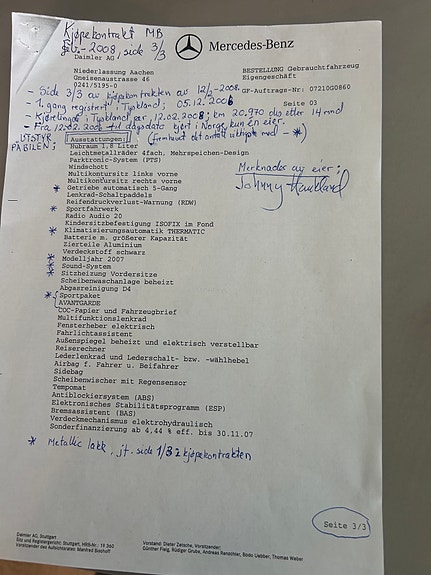 Kjøpekontrakt MB
febr. 2008, side 3/3
Mercedes-Benz
Daimler AG
Niederlassung Aachen
Gneisenaustrasse 46
0241/5195-0
BESTELLUNG Gebrauchtfahrzeug
Eigengeschäft
GF-Auftrags-Nr: 07210G0860
- Side 3/3 av kjøpekontrakten av 12/2-2008.
Seite 03
- 1. gang registrert i Tyskland; 05.12.2006
- Kjørelengde i Tyskland per 12.02.2008; km 20.970 dvs etter 14 mnd
- Fra 12.02.2008 til dagsdato kjørt i Norge, kun en eier.
UTSTYR PÅ BILEN; Ausstattungen:
Hubraum 1.8 Liter
Leichtmetallräder 4fach, Mehrspeichen-Design
Parktronic-System (PTS)
Windschott
Multikontursitz links vorne
Multikontursitz rechts vorne
* Getriebe automatisch 5-Gang
Lenkrad-Schaltpaddels
Reifendruckverlust-Warnung (RDW)
* Sportfahrwerk
Radio Audio 20
Kindersitzbefestigung ISOFIX im Fond
* Klimatisierungsautomatik THERMATIC
Batterie m. größerer Kapazität
Zierteile Aluminium
Verdeckstoff schwarz
* Modelljahr 2007
* Sound-System
* Sitzheizung Vordersitze
Scheibenwaschanlage beheizt
Abgasreinigung D4
* Sportpaket
AVANTGARDE
COC-Papier und Fahrzeugbrief
Multifunktionslenkrad
Fensterheber elektrisch
Fahrlichtassistent
Außenspiegel beheizt und elektrisch verstellbar
Reiserechner
Lederlenkrad und Lederschalt- bzw. -wählhebel
Airbag f. Fahrer u. Beifahrer
Sidebag
Scheibenwischer mit Regensensor
Tempomat
Antiblockiersystem (ABS)
Elektronisches Stabilitätsprogramm (ESP)
Bremsassistent (BAS)
Verdeckmechanismus elektrohydraulisch
Sonderfinanzierung ab 4,44 % eff. bis 30.11.07
Merknader av eier:
Johnny
* Metallic lakk, jf. side 1/3 i kjøpekontrakten
Seite 3/3
Daimler AG, Stuttgart
Sitz und Registergericht: Stuttgart, HRB-Nr.: 19 360
Vorsitzender des Aufsichtsrates: Manfred Bischoff
Vorstand: Dieter Zetsche, Vorsitzender;
Günther Fleig, Rüdiger Grube, Andreas Renschler, Bodo Uebber, Thomas Weber